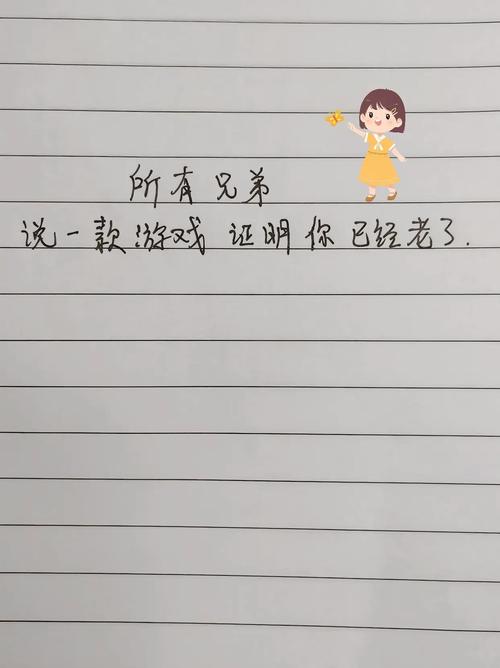 所有兄弟
说一款游戏 证明你已经老了.